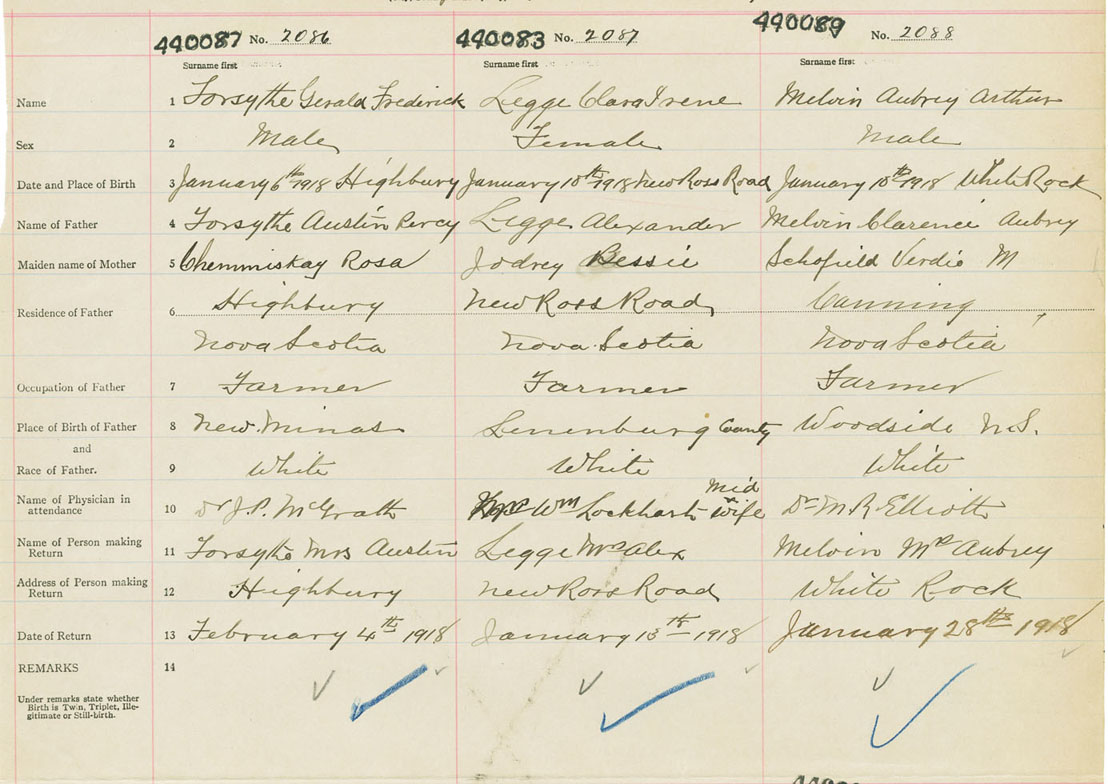 440087 No. 2086 440083 No. 2087 440089 No. 2088
Surname first Surname first Surname first
Name 1 Forsythe Gerald Frederick Legge Clara Irene Melvin Aubrey Arthur
Sex 2 Male Female Male
Date and Place of Birth 3 January 6th 1918 Highbury January 10th 1918 New Ross Road January 18th 1918 White Rock
Name of Father 4 Forsythe Austin Percy Legge Alexander Melvin Clarence Aubrey
Maiden name of Mother 5 Chemmiskay Rosa Jodrey Bessie Schofield Verdie M
Residence of Father 6 Highbury New Ross Road Canning
Nova Scotia Nova Scotia Nova Scotia
Occupation of Father 7 Farmer Farmer Farmer
Place of Birth of Father 8 New Minas Lunenburg County Woodside N.S.
and
Race of Father. 9 White White White
Name of Physician in attendance 10 Dr J.P. McGrath Wm Lockhart Mid wife Dr M R Elliott
Name of Person making Return 11 Forsythe Mrs Austin Legge Mrs Alex Melvin Mrs Aubrey
Address of Person making Return 12 Highbury New Ross Road White Rock
Date of Return 13 February 4th 1918 January 13th 1918 January 28th 1918
REMARKS 14
Under remarks state whether
Birth is Twin, Triplet, Ille-
gitimate or Still-birth.